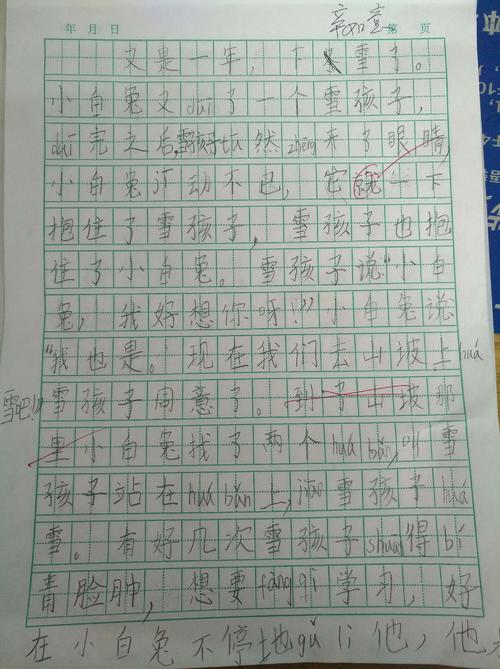 年 月 日 第 页
又是一年，下雪了。
小白兔又duī了一个雪孩子，
duī完之后，雪孩子tū然zhēng来了眼睛，
小白兔动不已，它就一下
抱住了雪孩子，雪孩子也抱
住了小白兔。雪孩子说“小白
兔，我好想你呀！”小白兔说
“我也是。现在我们去山坡上huá
雪吧！”雪孩子同意了。到了山坡那
里小白兔找了两个huá bǎn，叫雪
孩子站在huá bǎn上，教雪孩子huá
雪。有好几次雪孩子shuāi得bí
青脸肿，想要fàng qì学习，好
在小白兔不停地gǔ lì他，他